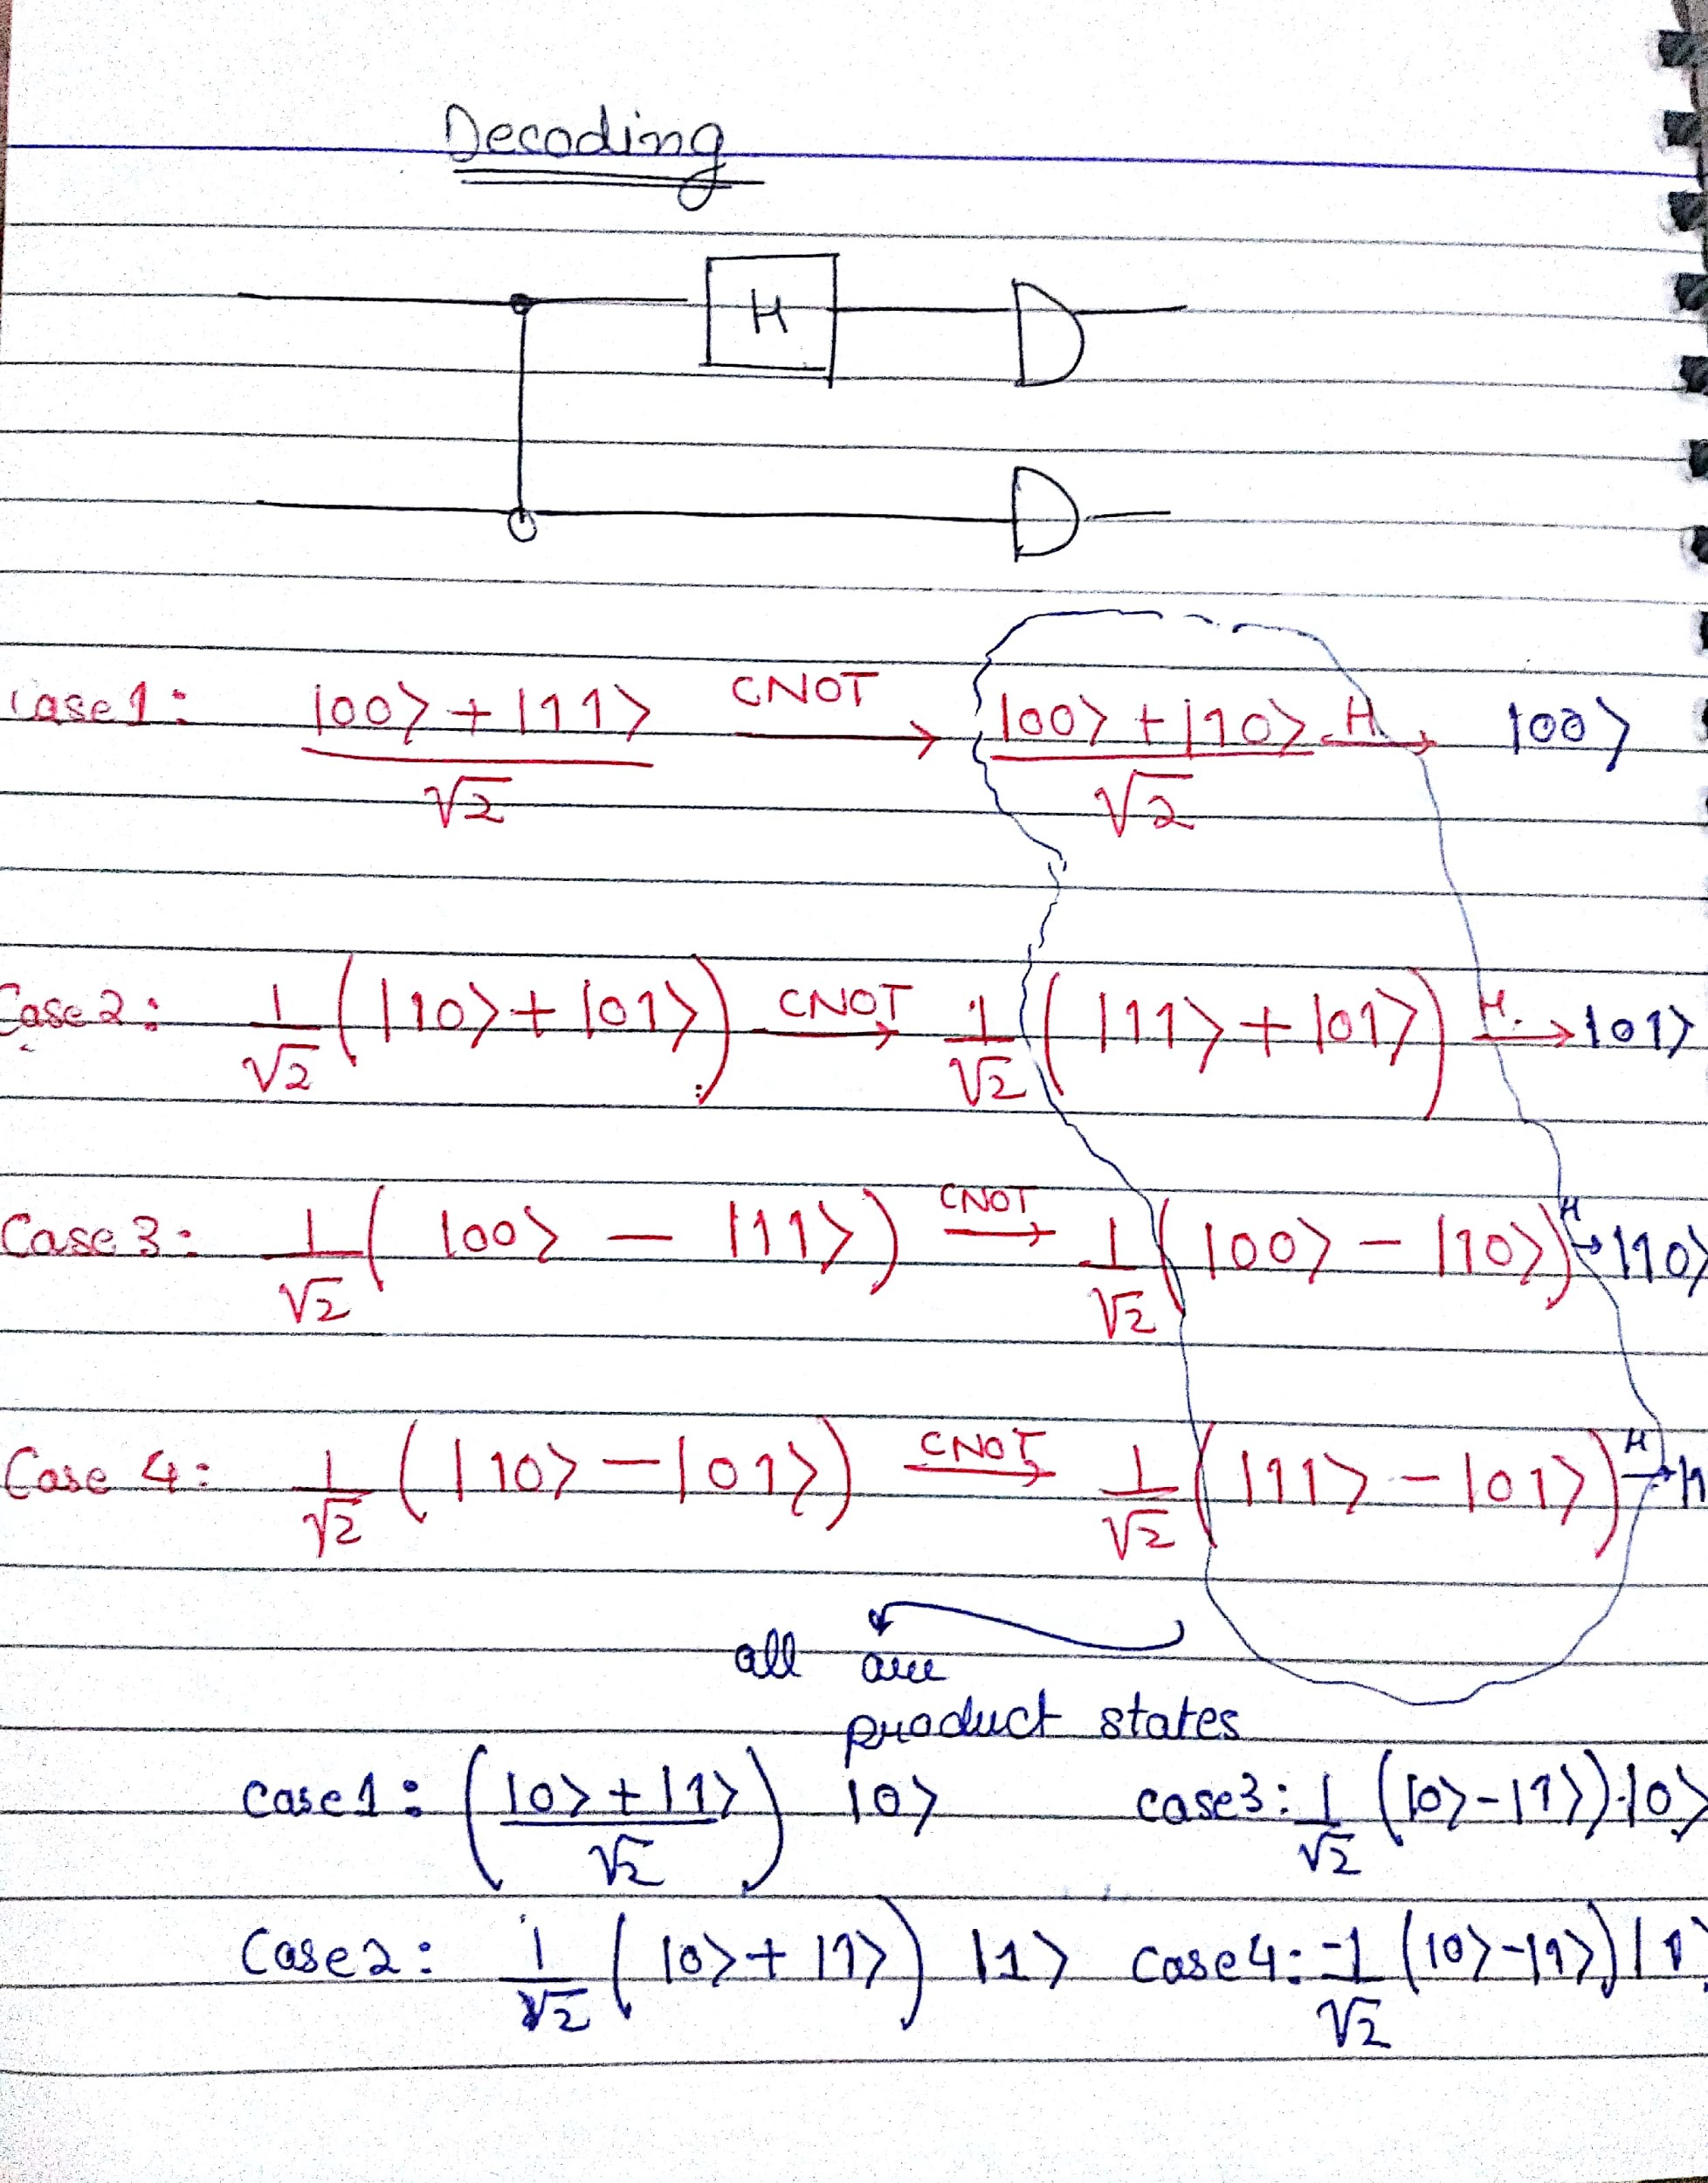 Decoding
H
Case 1: |00⟩ + |11⟩ / √2 CNOT → |00⟩ + |10⟩ / √2 H → |00⟩
Case 2: 1/√2 ( |10⟩ + |01⟩ ) CNOT → 1/√2 ( |11⟩ + |01⟩ ) H. → |01⟩
Case 3: 1/√2 ( |00⟩ − |11⟩ ) CNOT → 1/√2 ( |00⟩ − |10⟩ ) H → |10⟩
Case 4: 1/√2 ( |10⟩ − |01⟩ ) CNOT → 1/√2 ( |11⟩ − |01⟩ ) H → |1
all are
product states
case 1: ( |0⟩ + |1⟩ / √2 ) |0⟩ case 3: 1/√2 ( |0⟩ − |1⟩ ) |0⟩
Case 2: 1/√2 ( |0⟩ + |1⟩ ) |1⟩ case 4: −1/√2 ( |0⟩ − |1⟩ ) |1⟩